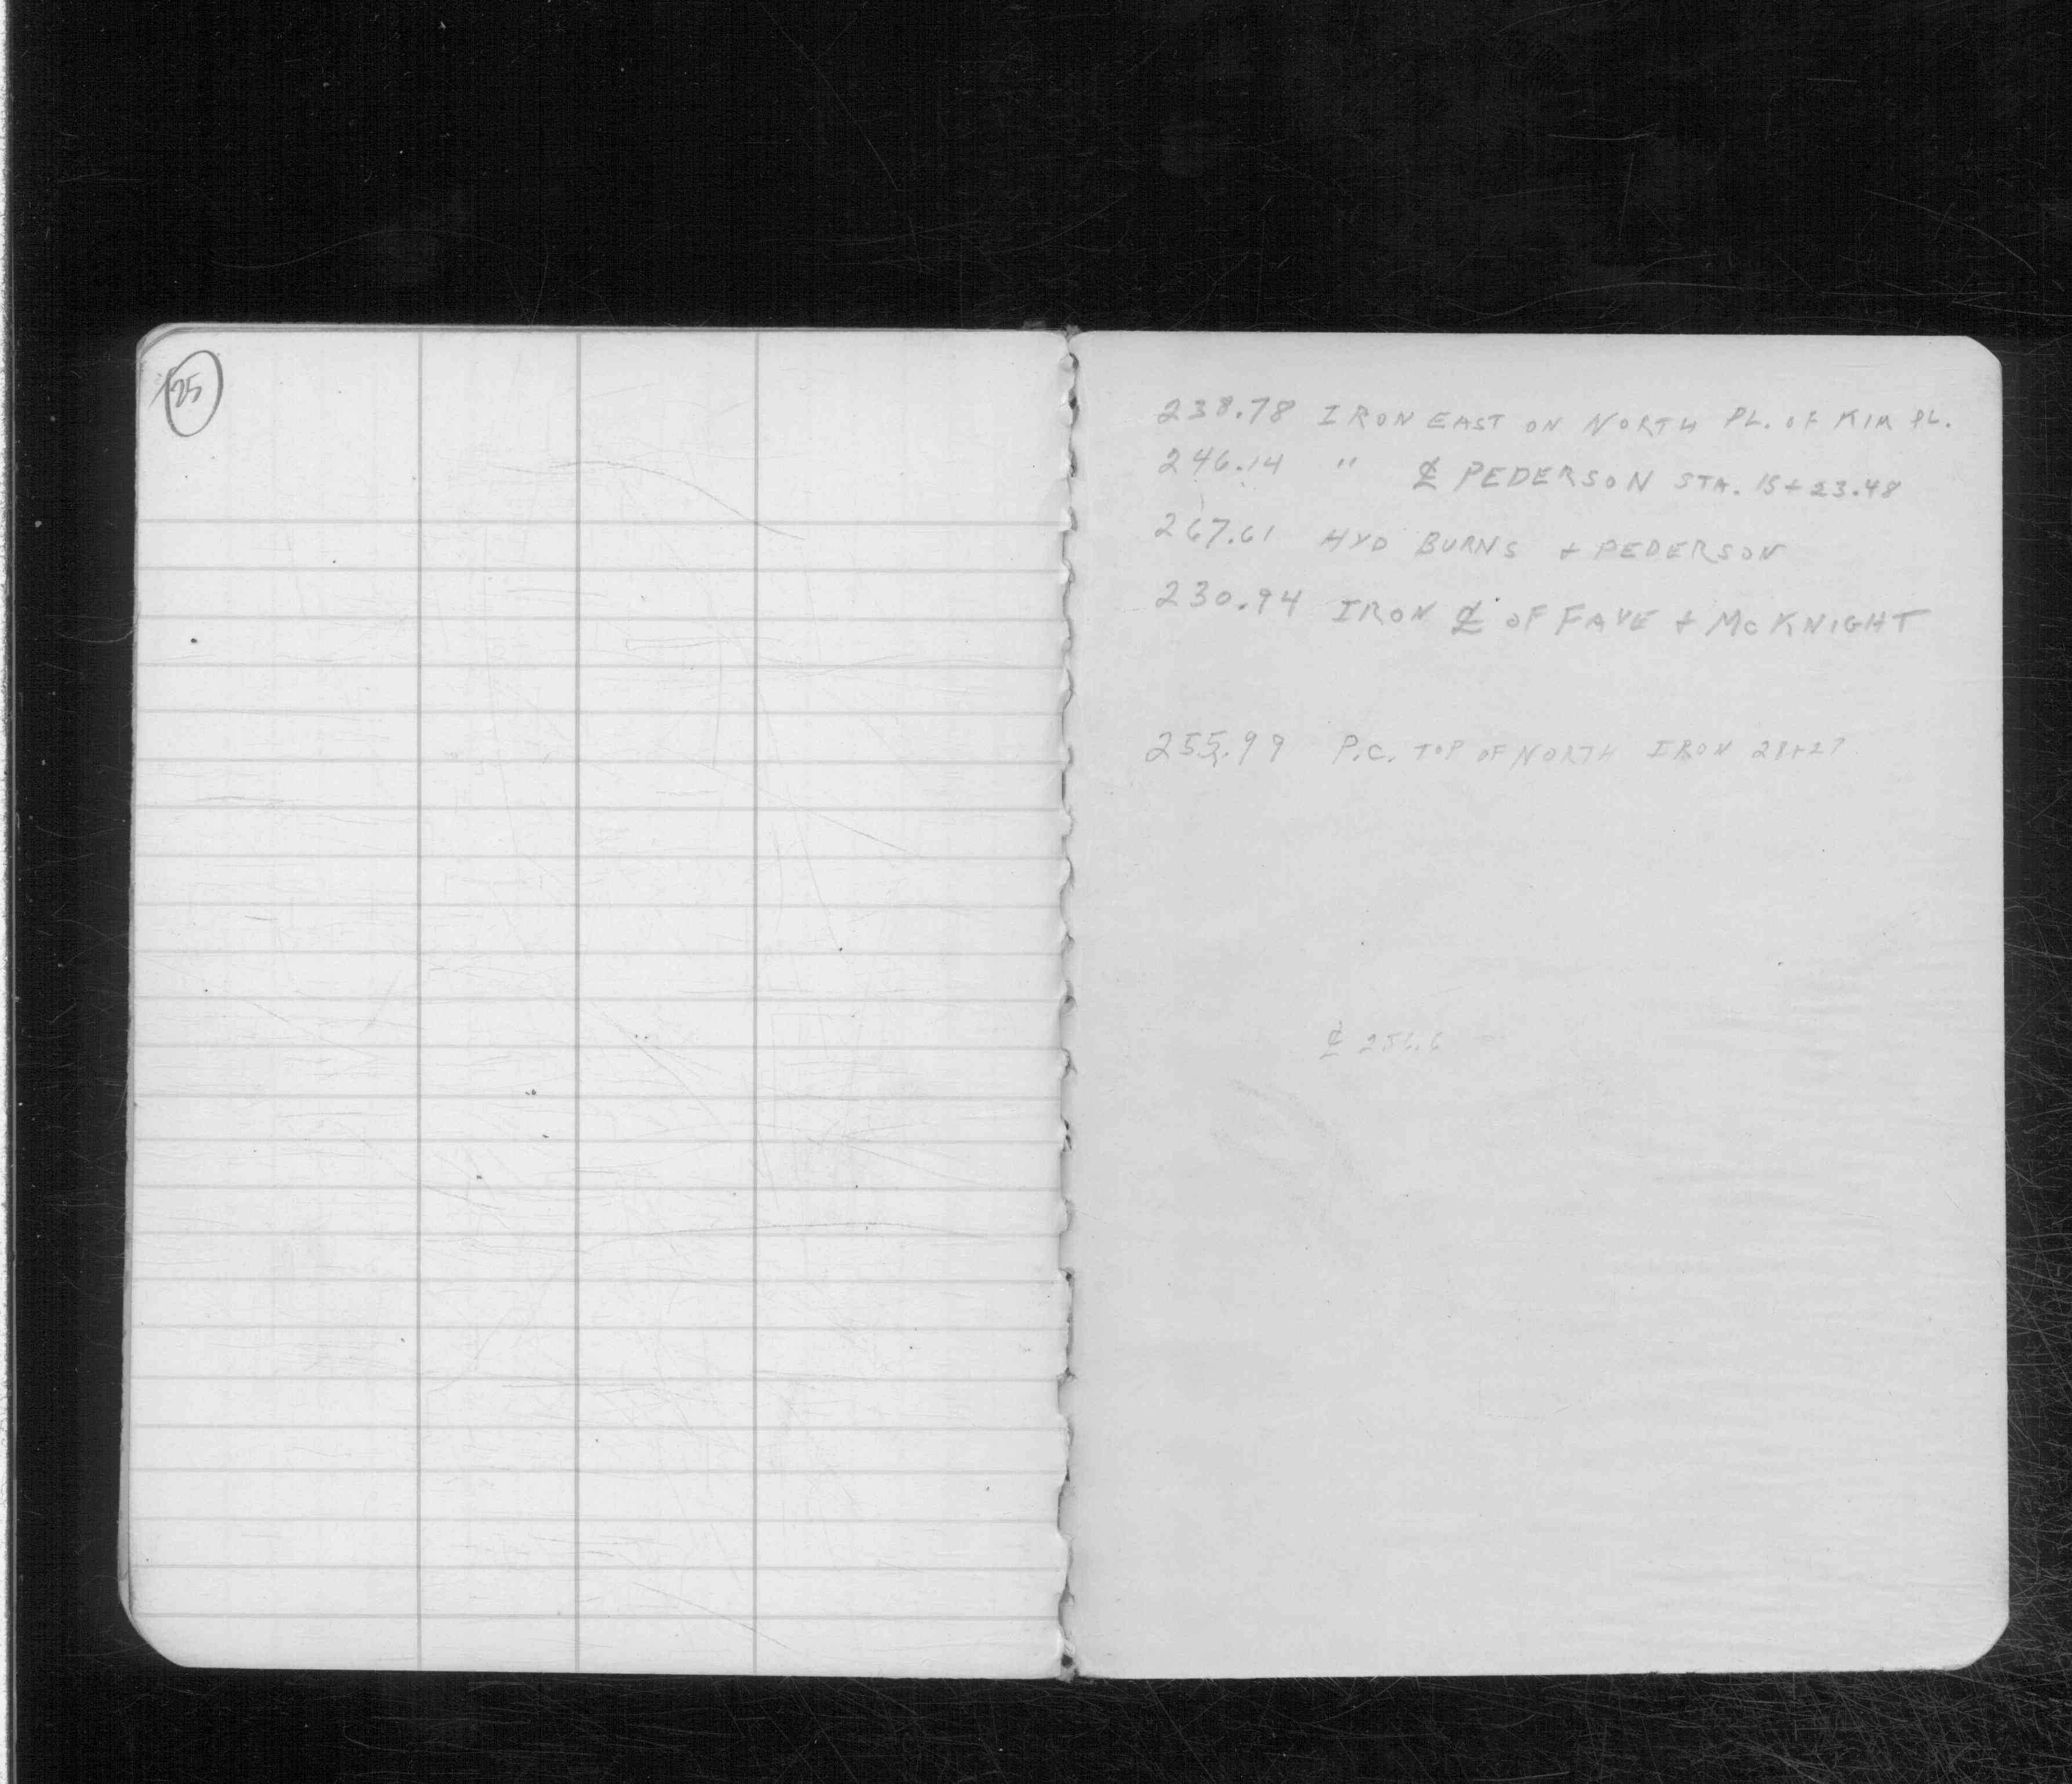 125
238.78 IRON EAST ON NORTH PL. OF KIM PL.
246.14 " ℄ PEDERSON STA. 15+23.48
267.61 HYD BURNS + PEDERSON
230.94 IRON ℄ OF FAYE + McKNIGHT
255.99 P.C. TOP OF NORTH IRON
℄ 256.6